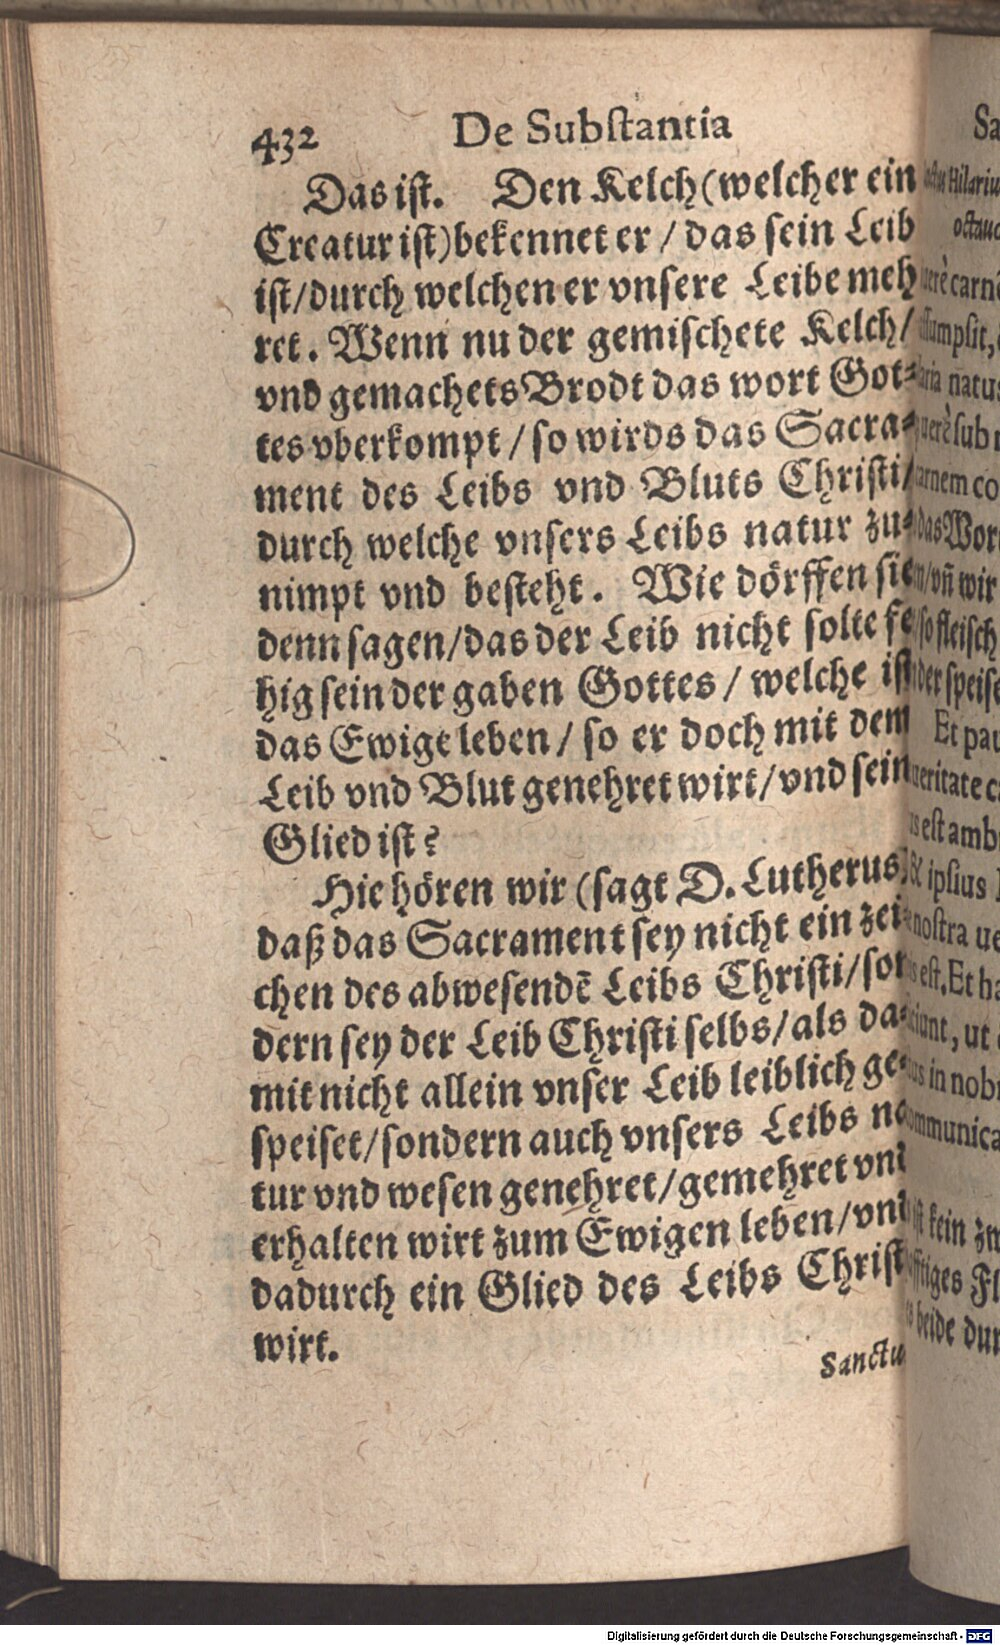 432 De Substantia
Das ist. Den Kelch (welcher ein
Creatur ist) bekennet er / das sein Leib
ist / durch welchen er vnsere Leibe meh
ret. Wenn nu der gemischete Kelch /
vnd gemachets Brodt das wort Got-
tes vberkompt / so wirds das Sacra-
ment des Leibs vnd Bluts Christi /
durch welche vnsers Leibs natur zu-
nimpt vnd besteht. Wie dörffen sie
denn sagen / das der Leib nicht solte fe
hig sein der gaben Gottes / welche ist
das Ewige leben / so er doch mit dem
Leib vnd Blut genehret wirt / vnd sein
Glied ist?
Hie hören wir (sagt D. Lutherus)
daß das Sacrament sey nicht ein zei-
chen des abwesendē Leibs Christi / son
dern sey der Leib Christi selbs / als da-
mit nicht allein vnser Leib leiblich ge-
speiset / sondern auch vnsers Leibs na
tur vnd wesen genehret / gemehret vnd
erhalten wirt zum Ewigen leben / vnd
dadurch ein Glied des Leibs Christi
wirt.
Sanctu
Sa
Hilariu
octauo
carnē
natus
sub
carnem co
das Wor
vñ wir
so fleisch
der speise
Et pau
ueritate ca
est amb
& ipsius
nostra ue
est. Et ha
ut
in nobi
communica
kein zw
Fl
beide dur
Digitalisierung gefördert durch die Deutsche Forschungsgemeinschaft - DFG